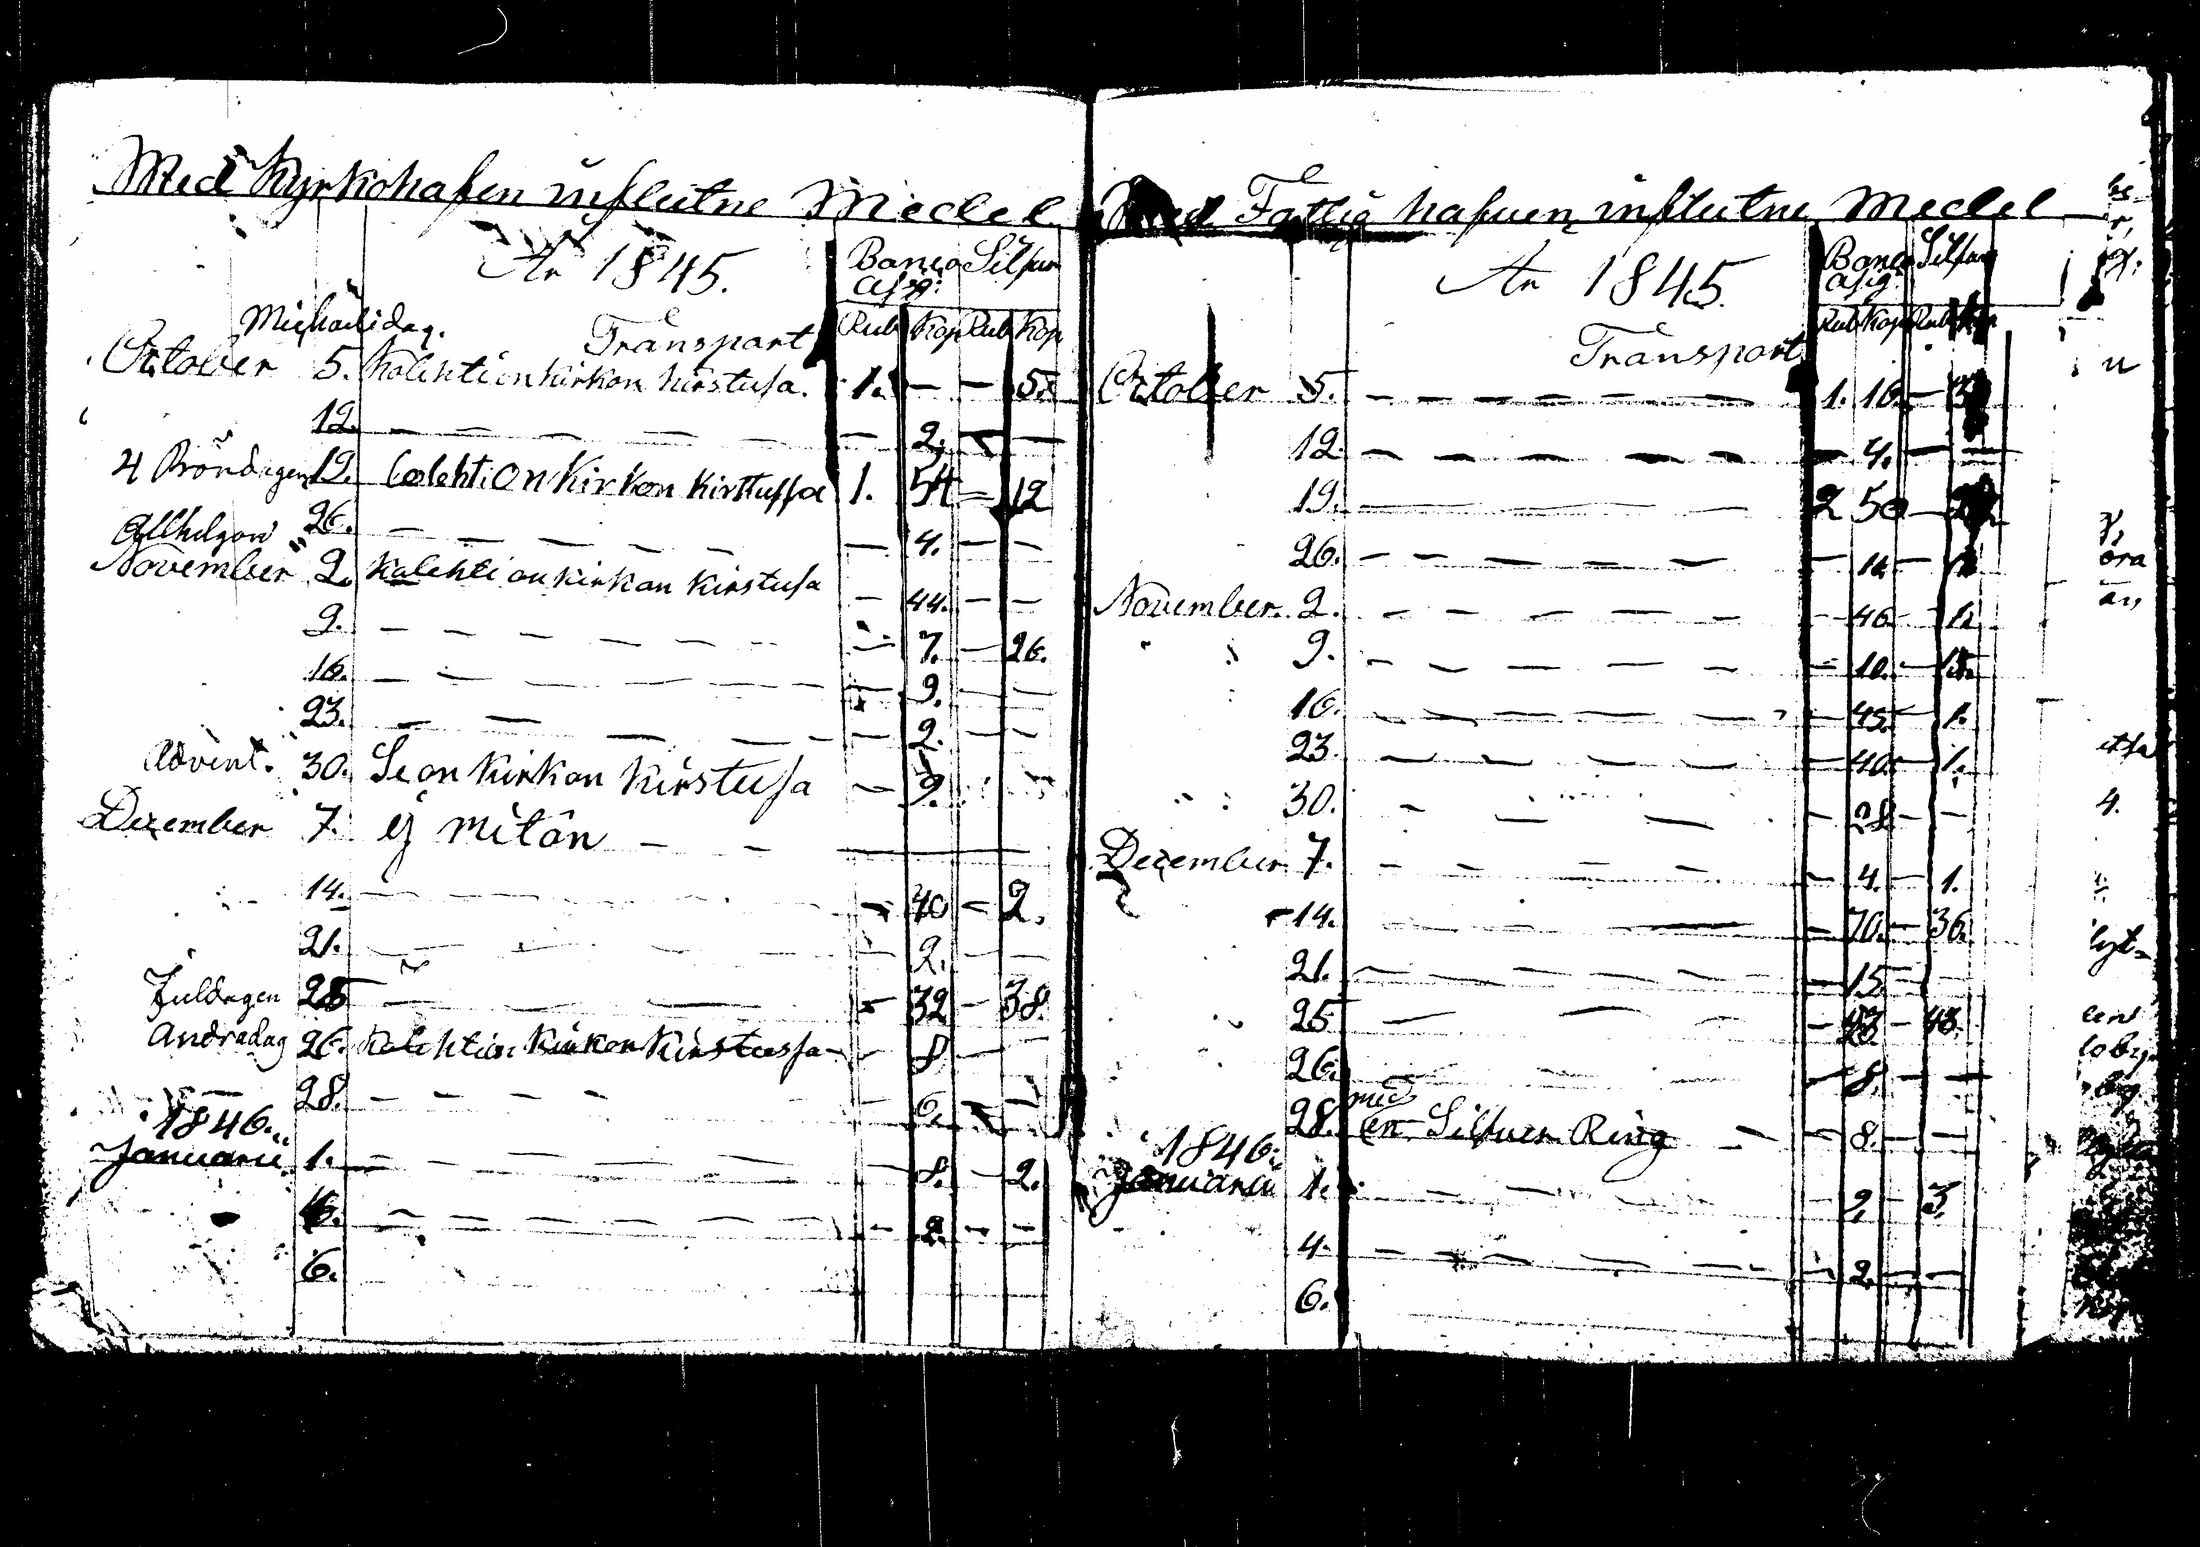 Med Kyrkohafen influtne Medel
År 1845.
Banco Assg: Silfver
Michaelidag. Transport Rub Kop Rub Kop
October 5. Kolehti on kirkon kirstusa. 1. — — 5.
12. — — — — — — 2. — —
4 Böndagen 19. Colehti on Kirkon kirstussa 1. 54 — 12
26. — — — — — — 4. — —
Allhelgon
November 2. kolehti on kirkon kirstusa — 44. — —
9. — — — — — — — 7. — 26.
16. — — — — — — — 9. — —
23. — — — — — — 2. — —
Advent. 30. Se on kirkon kirstusa — 9.
Dezember 7. ej mitän — —
14. — — — — — — 40 — 2.
21. — — — — — 2. — —
Juldagen 25 — — — — 32 — 38.
Andradag 26. kolehti on kirkon kirstussa — 8 —
28. — — — — 6. — —
1846.
Januarii 1. — — — — — — 8. — 2.
— — — — — — — 2. — —
6.
Med Fattig hafven influtne Medel
År 1845.
Banco Assig. Silfver
Transport Rub Kop Rub Kop
October 5. — — — — — — — 1. 10. —
12. — — — — — — — 4. — —
19. — — — — — — 2 50 —
26. — — — — — — — —
November. 2. — — — — — — 46 — 1.
9. — — — — — — — 10. — 15.
16. — — — — — — — 45. — 1.
23. — — — — — — — 40. — 1.
30. — — — 28 — —
December 7. — — — — — 4. — 1.
14. — — — — — 70. — 36.
21. — — — — — — 15. — —
25 — — — —
26. — — — — — 8. — —
med
28. en Silfver Ring — — 8. — —
1846.
Januarii 1. — — — — — 2, — 3.
4. — — — — — — — 2. — —
6.